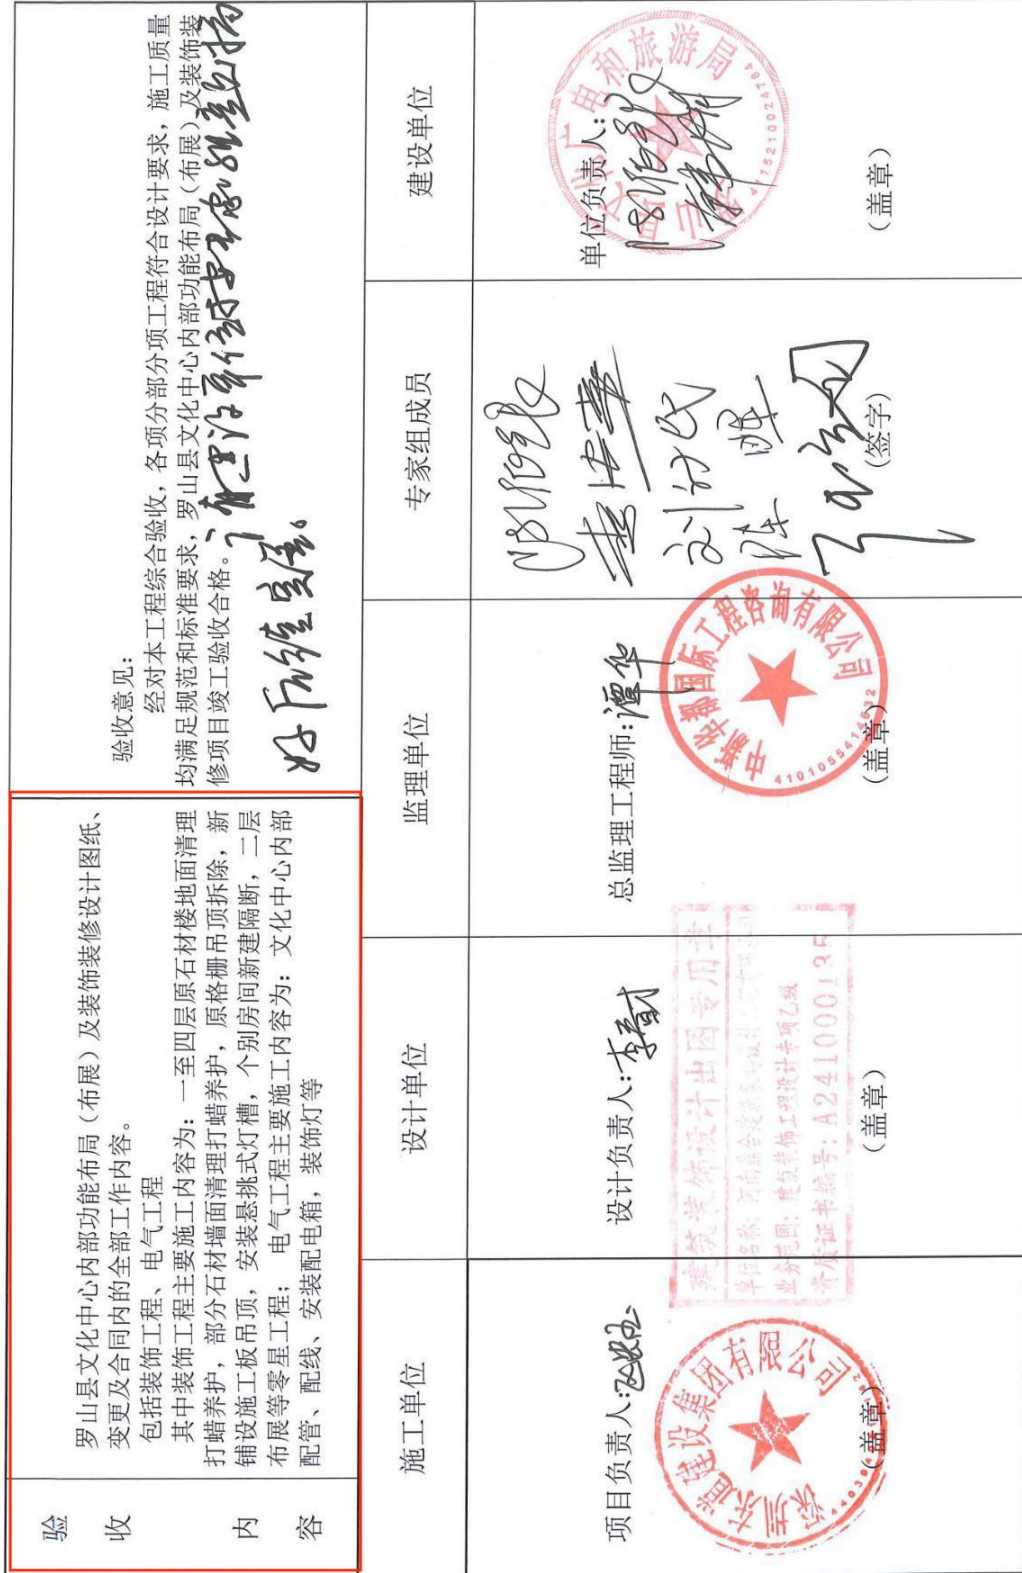 验
收
内
容
罗山县文化中心内部功能布局（布展）及装饰装修设计图纸、
变更及合同内的全部工作内容。
包括装饰工程、电气工程
其中装饰工程主要施工内容为：一至四层原石材楼地面清理
打蜡养护，部分石材墙面清理打蜡养护，原格栅吊顶拆除，新
铺设施工板吊顶，安装悬挑式灯槽，个别房间新建隔断，二层
布展等零星工程； 电气工程主要施工内容为：文化中心内部
配管、配线、安装配电箱，装饰灯等
验收意见：
经对本工程综合验收，各项分部分项工程符合设计要求，施工质量
均满足规范和标准要求，罗山县文化中心内部功能布局（布展）及装饰装
修项目竣工验收合格。
施工单位
设计单位
监理单位
专家组成员
建设单位
项目负责人：
深圳东道建设集团有限公司
（盖章）
设计负责人：
建筑装饰设计出图专用章
业务范围：建筑装饰工程设计专项乙级
资质证书编号：A241000135
（盖章）
总监理工程师：谭华
中新华都国际工程咨询有限公司
4101055414632
（盖章）
（签字）
单位负责人：
罗山县文化广电和旅游局
4115210024784
（盖章）